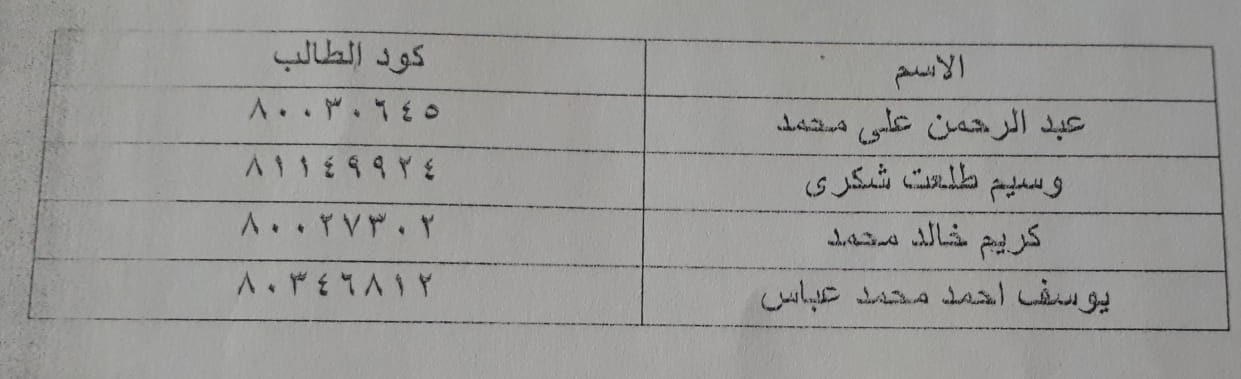 الاسم كود الطالب
عبد الرحمن على محمد ٨٠٠٣٠٦٤٥
وسيم طلعت شكرى ٨١١٤٩٩٢٤
كريم خالد محمد ٨٠٠٢٧٣٠٢
يوسف احمد محمد عباس ٨٠٣٤٦٨١٢